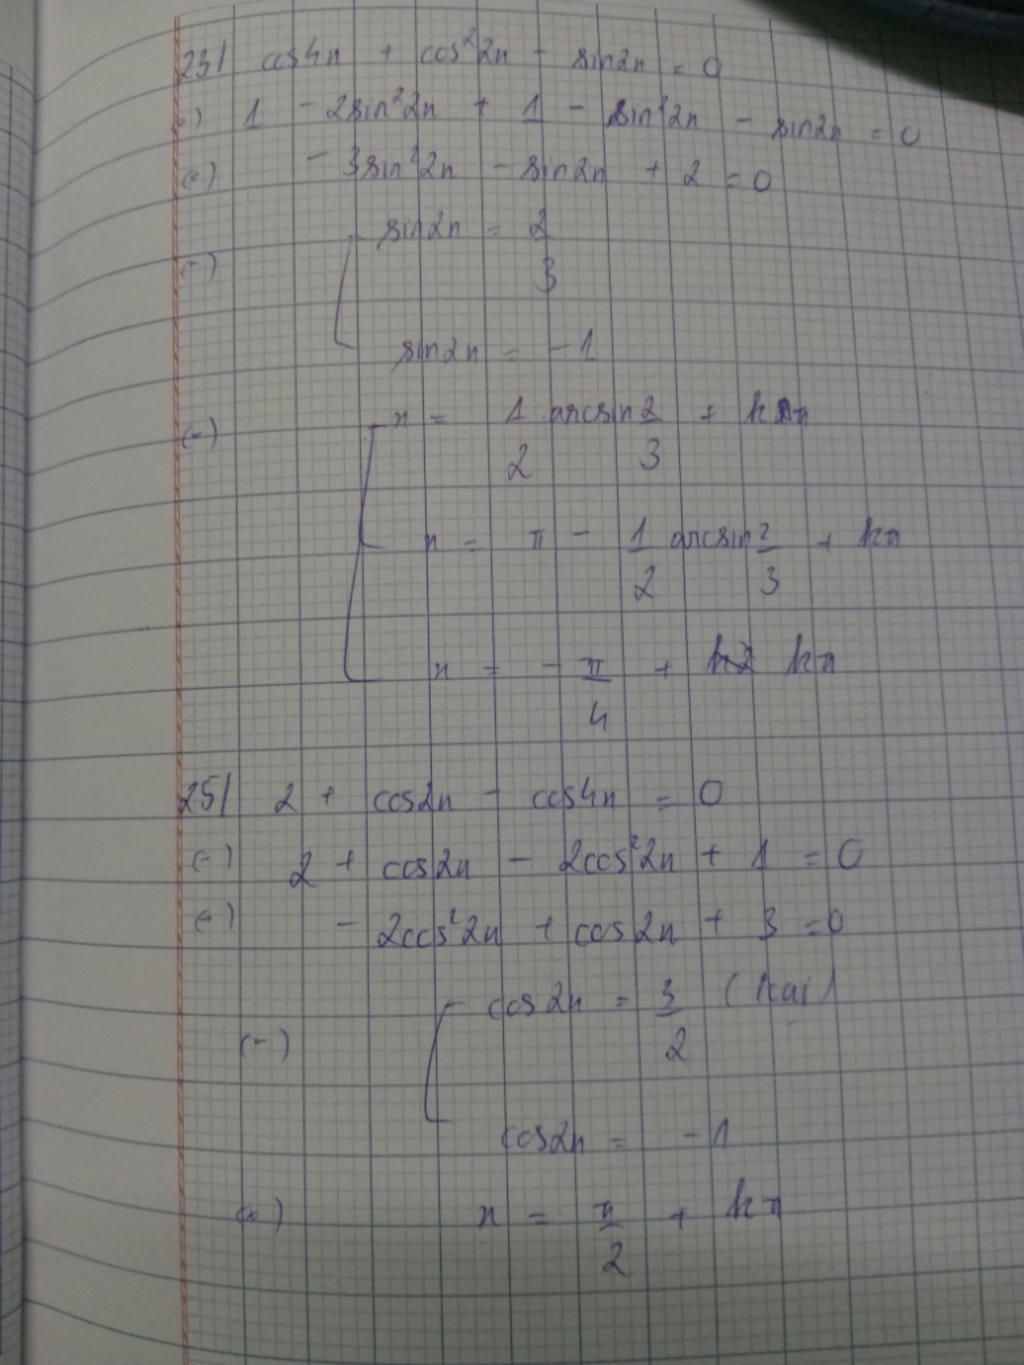 23/ cos4x + cos²2x - sin2x = 0
(=) 1 - 2sin²2x + 1 - sin²2x - sin2x = 0
(=) - 3sin²2x - sin2x + 2 = 0
(=) [ sin2x = 2/3
sin2x = -1
(=) [ x = 1/2 arcsin 2/3 + kπ
x = π - 1/2 arcsin 2/3 + kπ
x = - π/4 + kπ
25/ 2 + cos2x - cos4x = 0
(=) 2 + cos2x - 2cos²2x + 1 = 0
(=) - 2cos²2x + cos2x + 3 = 0
(=) [ cos2x = 3/2 (loại)
cos2x = -1
(=) x = π/2 + kπ